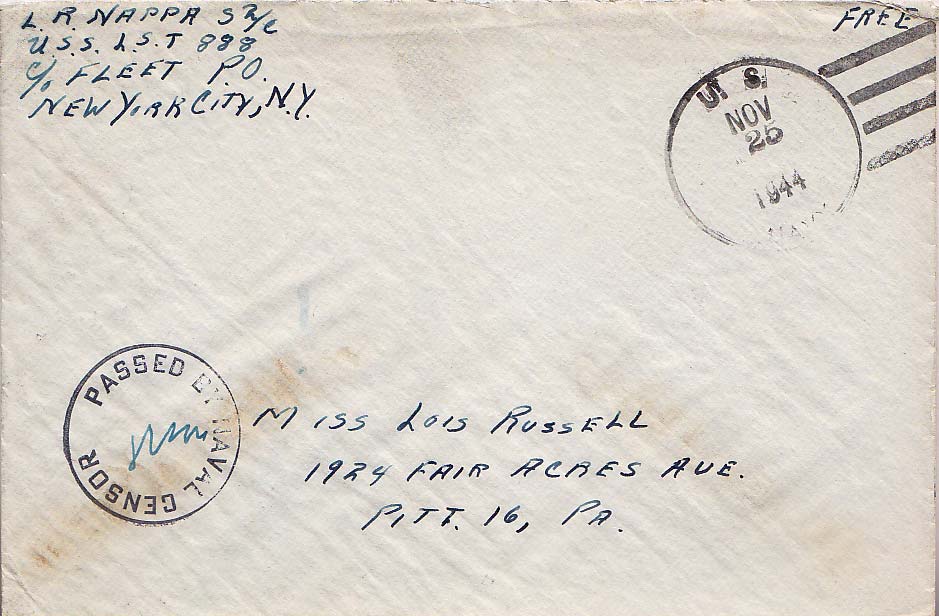 L. R. NAPPA S 2/c
U.S.S. L.S.T 888
c/o FLEET P.O.
NEW YORK CITY, N.Y.
FREE
U. S.
NOV
25
1944
NAVY
PASSED BY NAVAL CENSOR
MISS LOIS RUSSELL
1924 FAIR ACRES AVE.
PITT. 16, PA.